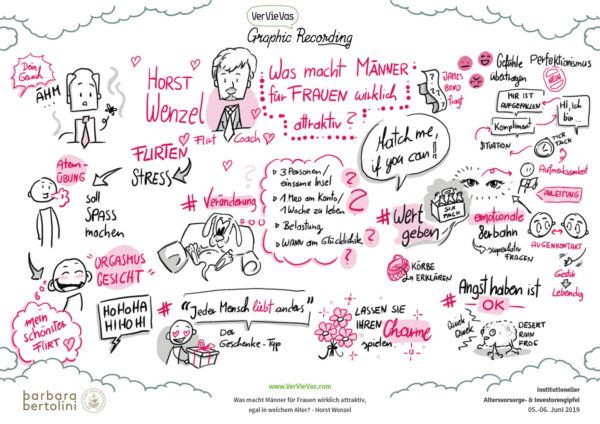 VerVieVas
Graphic Recording
Dein Gauch
ÄHM...
HORST
Wenzel
Flirt Coach
Was macht MÄNNER
für FRAUEN wirklich
attraktiv?
JAMES
BOND
fragt
Gefühle
übertragen
Perfektionismus
NEIN
MIR IST
AUFGEFALLEN
Kompliment
SITUATION
Hi, Ich
bin ...
TICK
TACK
Atem-
ÜBUNG
soll
SPASS
machen
FLIRTEN
STRESS
# Veränderung
3 Personen/
einsame Insel
1 Mio am Konto/
1 Woche zu leben
Belastung
WANN am Glücklichste
Match me,
if you can!!
# Wert
geben
SIX
PACK
KÖRBE
ERKLÄREN
emotionale
superlativ
FRAGEN
Aufmerksamkeit
ANLEITUNG
AUGENKONTAKT
Gestik
Lebendig
ORGASMUS
GESICHT
mein
schönster
FLIRT
HOHOHA
HIHOHI
# "Jeder Mensch liebt anders"
Der
Geschenke-Typ
LASSEN SIE
IHREN Charme
spielen
# Angst haben ist
OK
Quiek
Quiek
DESERT
RAIN
FROG
barbara
bertolini
www.VerVieVas.com
Was macht Männer für Frauen wirklich attraktiv,
egal in welchem Alter? - Horst Wenzel
Institutioneller
Altersvorsorge- & Investorengipfel
05.-06. Juni 2019